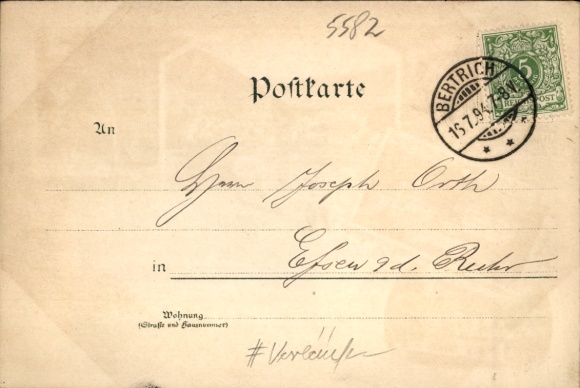 5582
Postkarte
5
REICHSPOST
BERTRICH
16.7.94.7-8V.
An
Herrn Joseph Orth
in Essen a d. Ruhr
Wohnung
(Straße und Hausnummer)